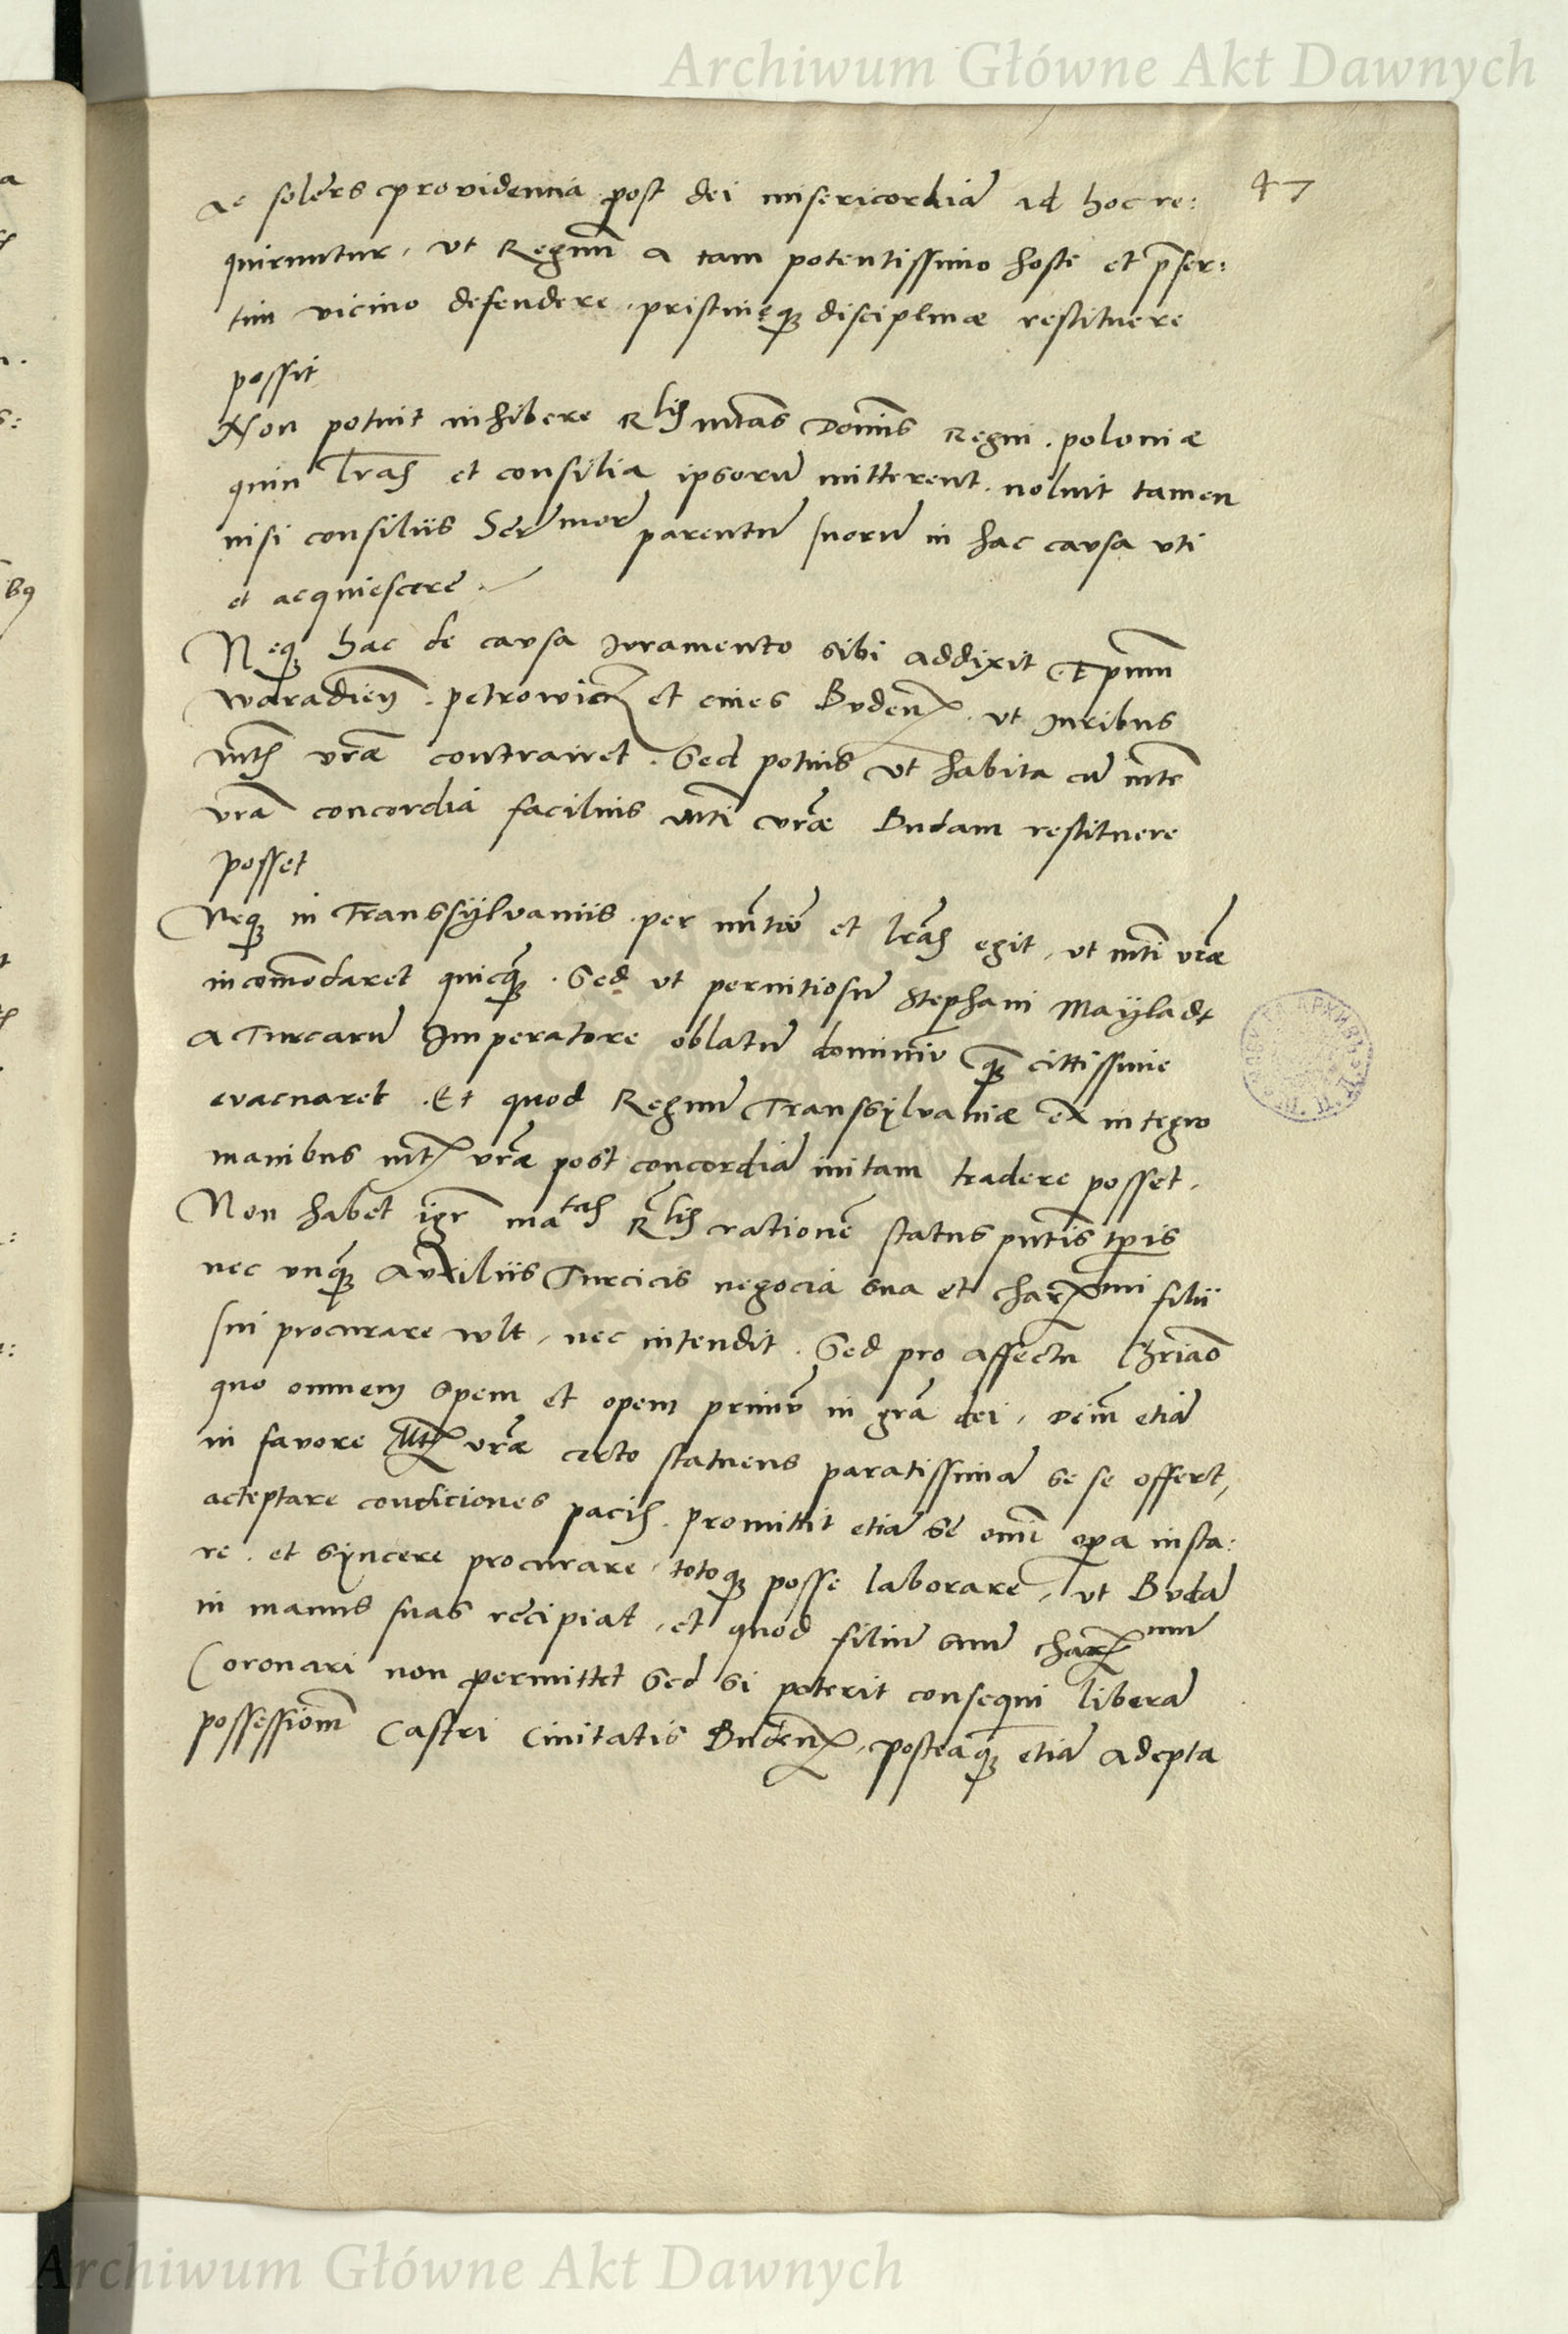 Archiwum Główne Akt Dawnych
47
ac solers providentia post dei misericordiã ad hoc re:
quiruntur, ut Regnũ a tam potentissimo hoste et p̃ser:
tim vicino defendere, pristinęq₃ disciplinæ restituere
possit
Non potuit inhibere Rlis mtas Domĩs Regni poloniæ
quin l̃ras et consilia ipsorũ mitterent. noluit tamen
nisi consiliis Sermor̃ parentũ suorũ in hac causa uti
et acquiescere.
Neq₃ hac de causa Juramento sibi addixit Epum̃
waradieñ. petrowicz et cives Budeñ. ut Juribus
mtis vr̃æ contrairet. Sed potius ut habita cũ mte
vrã concordia facilius mti vr̃æ Budam restituere
posset
Neq₃ in Transsÿlvaniis per nũtios et l̃ras egit, ut mti vr̃æ
incom̃odaret quicq₃. Sed ut pernitiosũ Stephani Maÿladt
a Turcarũ Imperatore oblatũ dominiũ q₃ cittissime
evacuaret. Et quod Regnũ Transsylvaniæ ex integro
manibus mtis vr̃æ post concordiã initam tradere posset.
Non habet igr̃ matas Rlis rationẽ status pñtis tp̃is
nec unq₃ auxiliis Turcicis negocia sua et charmi filii
sui procurare vult, nec intendit. Sed pro affectu
quo omnem spem et opem primũ in grã dei, dein̄ etiã
in favore Mtis vr̃æ certo statuens paratissimã se se offert,
acceptare condiciones pacis. promittit etiã se om̃i opa insta:
re. et sÿncere procurare, totoq₃ posse laborare, ut Budã
in manus suas recipiat, et quod filiũ suũ charmum
Coronari non permittet Sed si poterit consequi liberã
possessionem̃ Castri Civitatis Budeñ, posteaq₃ etiã adepta
Archiwum Główne Akt Dawnych